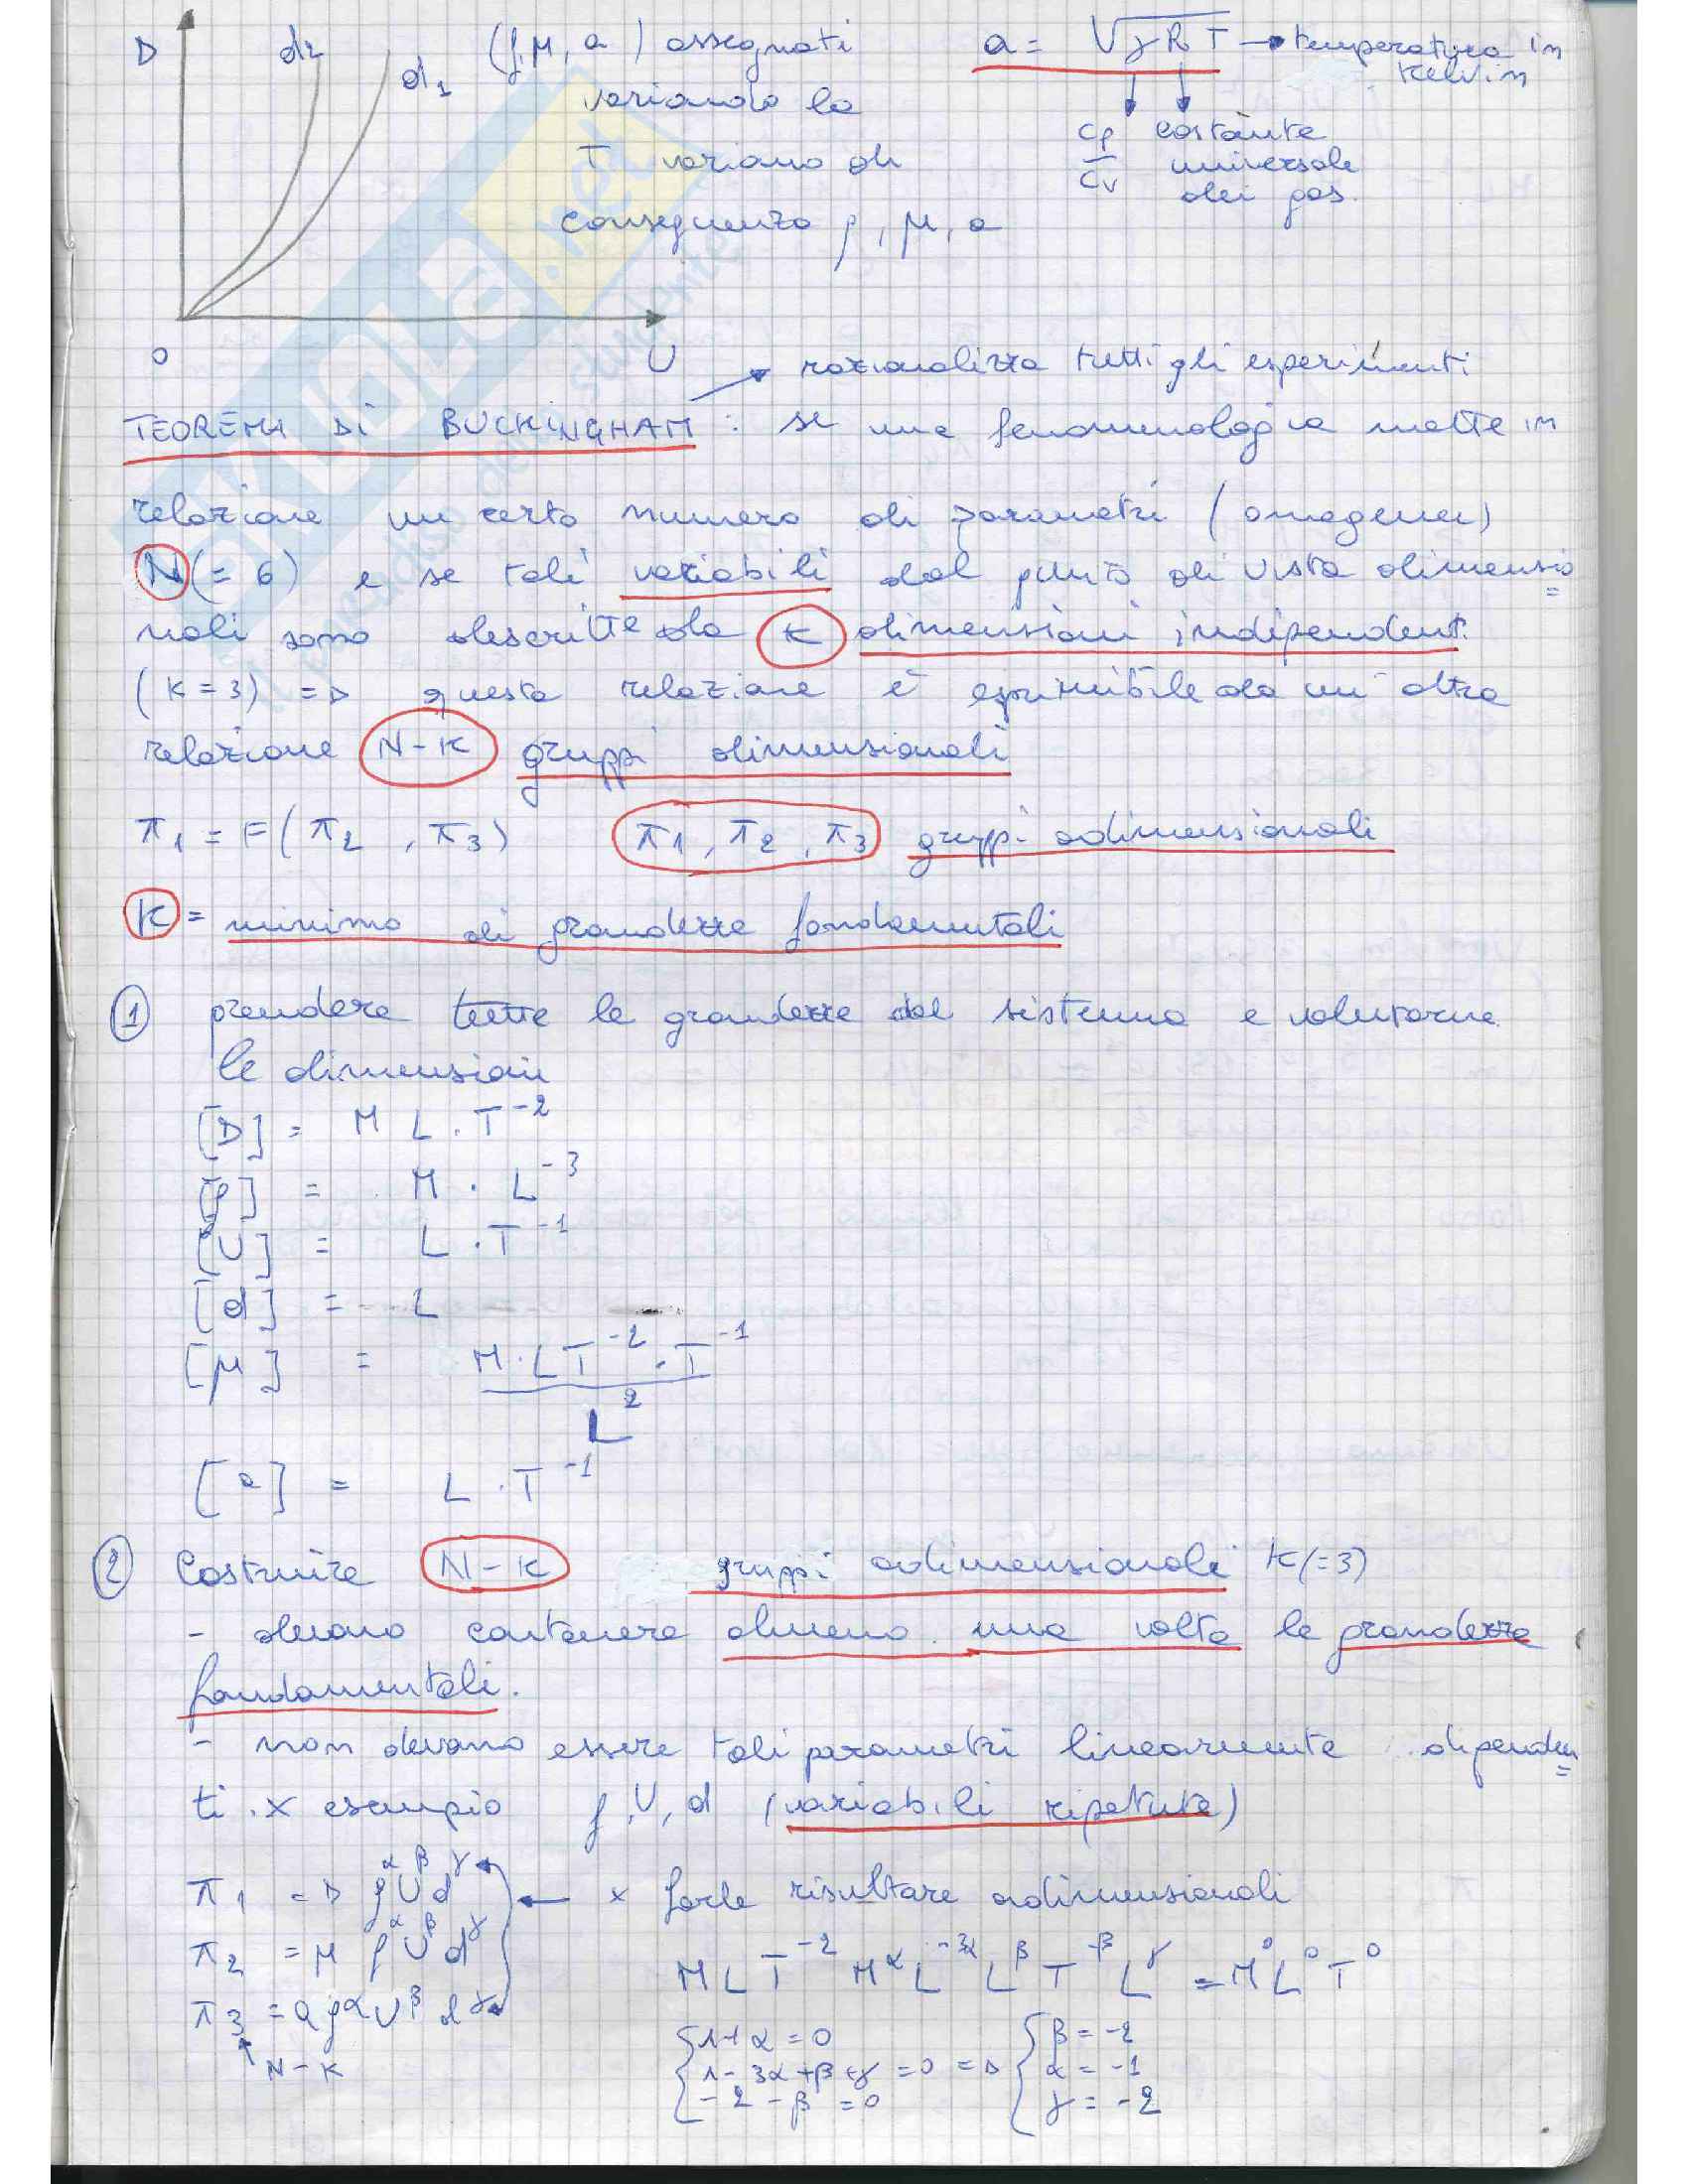 D d2 d1 (ρ, μ, a) assegnati a = √γRT → temperatura in
kelvin
variando la
cp/cv costante
T variano di universale
dei gas.
conseguenza ρ, μ, a
0 U → razionalizza tutti gli esperimenti
TEOREMA Di BUCKINGHAM : se una fenomenologia mette in
relazione un certo numero di parametri (omogenei)
N (= 6) e se tali variabili dal punto di vista dimensio=
nali sono descritte da K dimensioni indipendenti
(K = 3) => questa relazione è esprimibile da un'altra
relazione N-K gruppi dimensionali
π1 = F(π2, π3) π1, π2, π3 gruppi adimensionali
K = minimo di grandezze fondamentali
1 prendere tutte le grandezze del sistema e valutarne
le dimensioni
[D] = M L · T⁻²
[ρ] = M · L⁻³
[U] = L · T⁻¹
[d] = L
[μ] = M · L T⁻² · T⁻¹ / L²
[a] = L · T⁻¹
2 Costruire N-K gruppi adimensionali K(=3)
- devono contenere almeno una volta le grandezze
fondamentali.
- non devono essere tali parametri linearmente dipenden=
ti. x esempio ρ, U, d (variabili ripetute)
π1 = D ρ^α U^β d^γ ← x farle risultare adimensionali
π2 = μ ρ^α U^β d^γ M L T⁻² M^α L^-3α L^β T^-β L^γ = M⁰ L⁰ T⁰
π3 = a ρ^α U^β d^γ
N-K
{1+α = 0
1-3α+β+γ = 0
-2-β = 0 => {β = -2
α = -1
γ = -2
SKUOLA.net
il paradiso dello studente